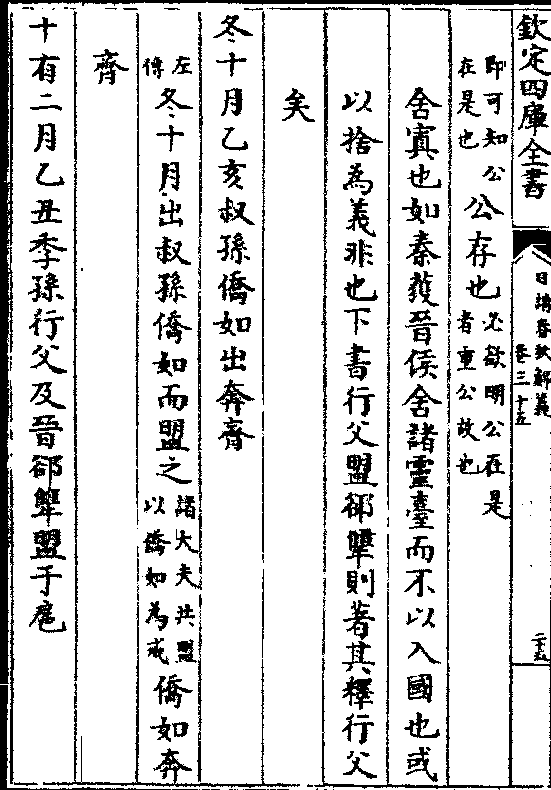 欽定四庫全書
日講春秋解義
卷三十五
二十五
即可知公
在是也
公存也
必欲明公在是
者重公故也
舍寘也如秦獲晉侯舍諸靈臺而不以入國也或
以捨為義非也下書行父盟郤犫則著其釋行父
矣
冬十月乙亥叔孫僑如出奔齊
左
傳
冬十月出叔孫僑如而盟之
諸大夫共盟
以僑如為戒
僑如奔
齊
十有二月乙丑季孫行父及晉郤犫盟于扈